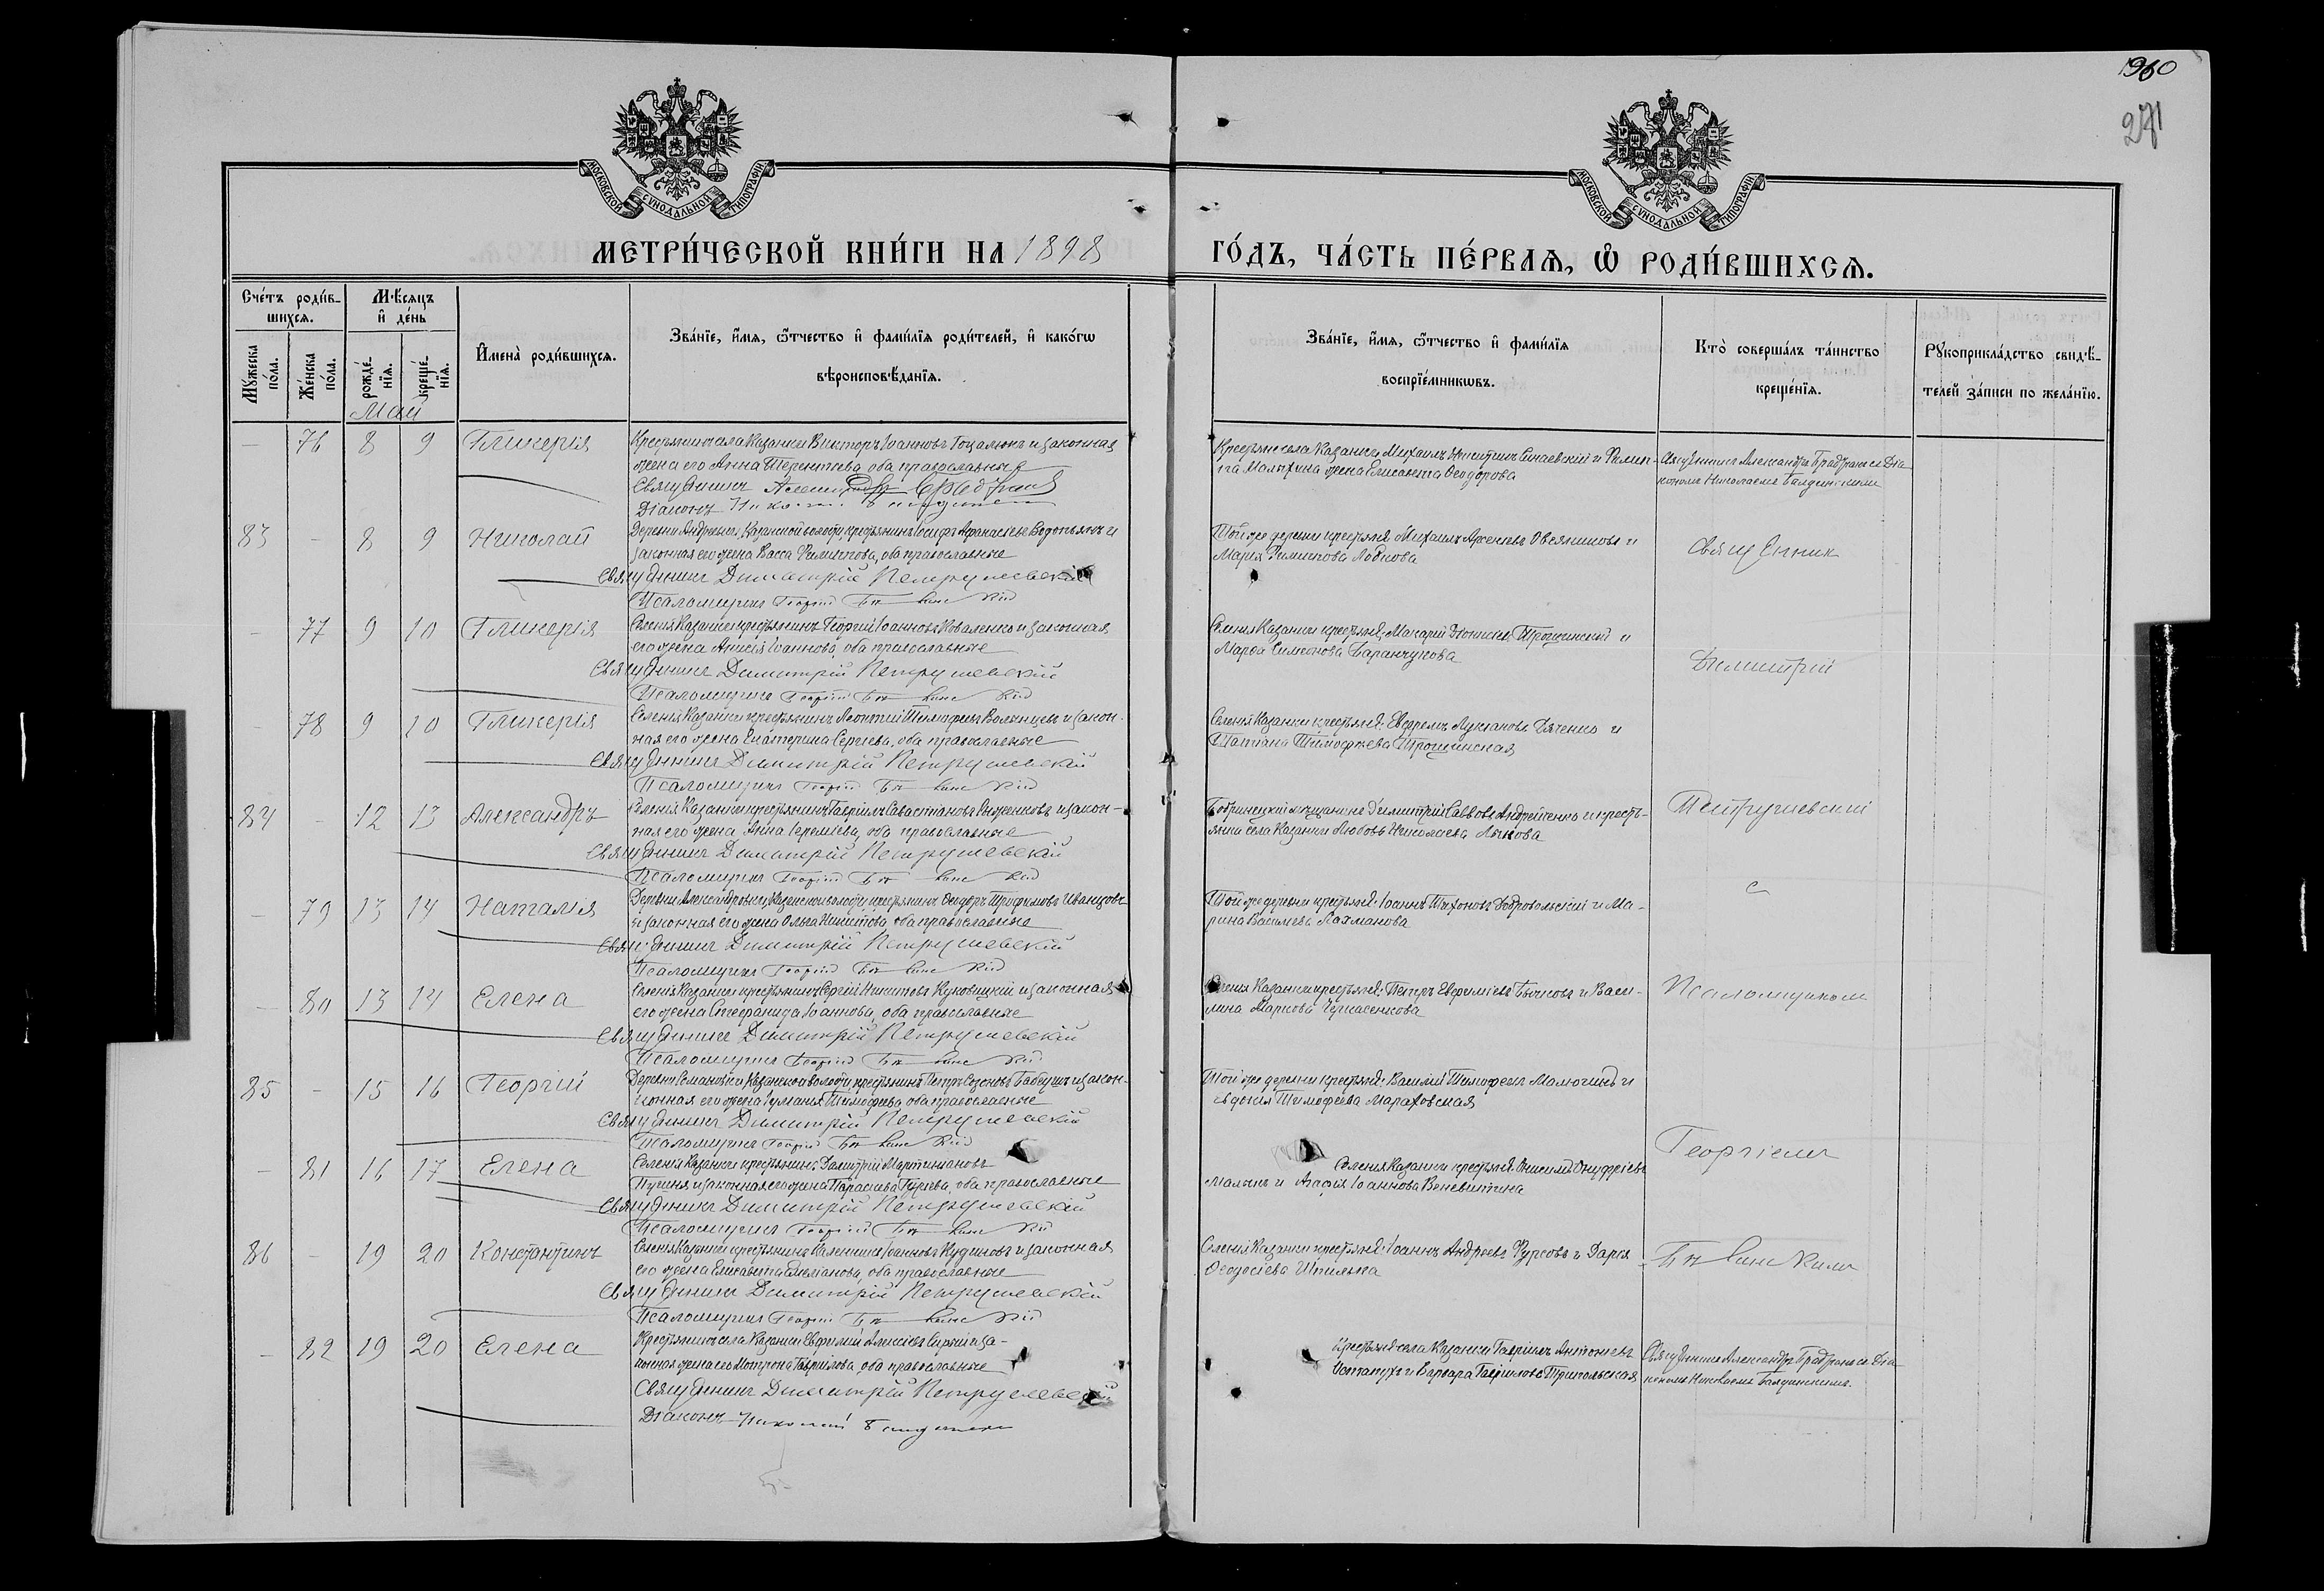 960
271
МОСКОВСКОЙ СѴНОДАЛЬНОЙ ТИПОГРАФІИ.
МОСКОВСКОЙ СѴНОДАЛЬНОЙ ТИПОГРАФІИ.
МЕТРИ́ЧЕСКОЙ КНИ́ГИ НА 1898
ГО́ДЪ, ЧА́СТЬ ПЕ́РВАѦ, Ѡ РОДИ́ВШИХСѦ.
Сче́тъ роди́в-
шихсѧ.
Мꙋ́жеска по́ла.
Же́нска по́ла.
Мѣ́сѧцъ
и҆ де́нь
рожде́-
нїѧ.
креще́-
нїѧ.
И҆мена̀ роди́вшихсѧ.
Зва́нїе, и҆́мѧ, ѻ҆́тчество и҆ фамн́лїѧ роди́телей, и҆ како́гѡ
вѣроисповѣ́данїѧ.
Зва́нїе, и҆́мѧ, ѻ҆́тчество и҆ фами́лїѧ
воспрїе́мникѡвъ.
Кто̀ соверша́лъ та́инство
креще́нїѧ.
Рꙋкоприкла́дство свидѣ́-
телей за́писи по жела́нїю.
Май
— 76 8 9 Гликерія
Крестьянинъ села Казанки Викторъ Іоанновъ и законная
жена его Анна Терентіева, оба православные
Священникъ
Діаконъ
Крестьяне села Казанки Михаилъ Никитинъ Синаевскій и Филип-
па Малыхина жена Елисавета Ѳеодорова
Священникъ Александръ съ Діа-
кономъ Николаемъ
83 — 8 9 Николай
Деревни Казанской волости, крестьянинъ Іосифъ Афанасіевъ Водопьянъ и
законная его жена Васса Филиппова, оба православные
Священникъ Димитрій Петрушевскій
Псаломщикъ Георгій
Той же деревни крестьяне Михаилъ Арсеніевъ Овсянниковъ и
Марія Филиппова
Священник
— 77 9 10 Гликерія
Селенія Казанки крестьянинъ Георгій Іоанновъ Коваленко и законная
его жена Анисія Іоаннова, оба православные
Священникъ Димитрій Петрушевскій
Псаломщикъ Георгій
Селенія Казанки крестьяне: Макарій Трощинскій и
Марѳа Симеонова Баранчукова
Димитрій
— 78 9 10 Гликерія
Селенія Казанки крестьянинъ Леонтій Тимоѳеевъ и закон-
ная его жена Екатерина Сергіева, оба православные
Священникъ Димитрій Петрушевскій
Псаломщикъ Георгій
Селенія Казанки крестьяне: Евфремъ Лукіановъ Дяченко и
Татіана Тимофеева Трощинская
84 — 12 13 Александръ
Селенія Казанки крестьянинъ Гавріилъ Севастіановъ и закон-
ная его жена Анна Іереміева, оба православные
Священникъ Димитрій Петрушевскій
Псаломщикъ Георгій
Бобринецкій мѣщанинъ Димитрій Саввовъ Андрейченко и кресть-
янка села Казанки Любовь Николаева Лыкова
Петрушевскій
— 79 13 14 Наталія
Деревни Александровки, Казанской волости, крестьянинъ Ѳеодоръ Трофимовъ Иванцовъ
и законная его жена Ольга Никитова, оба православные
Священникъ Димитрій Петрушевскій
Псаломщикъ Георгій
Той же деревни крестьяне: Іоаннъ Тихоновъ Добровольскій и Ма-
рина Васильева Лахманова
с
— 80 13 14 Елена
Селенія Казанки крестьянинъ Сергій Никитовъ Куковицкій и законная
его жена Стефанида Іоаннова, оба православные
Священникъ Димитрій Петрушевскій
Псаломщикъ Георгій
Селенія Казанки крестьяне: Петръ Евфиміевъ Бычковъ и Васи-
лина Маркова Черкасенкова
Псаломщикомъ
85 — 15 16 Георгій
Деревни Казанской волости, крестьянинъ Петръ и закон-
ная его жена Тимоѳеева, оба православные
Священникъ Димитрій Петрушевскій
Псаломщикъ Георгій
Той же деревни крестьяне: Василій Тимофеевъ и
Евдокія Тимофеева Мараховская
Георгіемъ
— 81 16 17 Елена
Селенія Казанки крестьянинъ Димитрій Мартиніановъ
и законная его жена Параскева Гуріева, оба православные
Священникъ Димитрій Петрушевскій
Псаломщикъ Георгій
Селенія Казанки крестьяне: Онисимъ Онуфріевъ
Малыхъ и Агафія Іоаннова Веневитина
86 — 19 20 Константинъ
Селенія Казанки крестьянинъ Іоанновъ Кудиновъ и законная
его жена Елисавета Емеліанова, оба православные
Священникъ Димитрій Петрушевскій
Псаломщикъ Георгій
Селенія Казанки крестьяне: Іоаннъ Андреевъ Фурсовъ и Дарія
Ѳеодосіева Шпилька
— 82 19 20 Елена
Крестьянинъ села Казанки Евфимій Алексіевъ и за-
конная жена его Матрона Гавріилова, оба православные
Священникъ Димитрій Петрушевскій
Діаконъ Николай
Крестьяне села Казанки Гавріилъ Антоніевъ
Остапухъ и Варвара Гавріилова Трипольская
Священникъ Александръ съ Діа-
кономъ Николаемъ